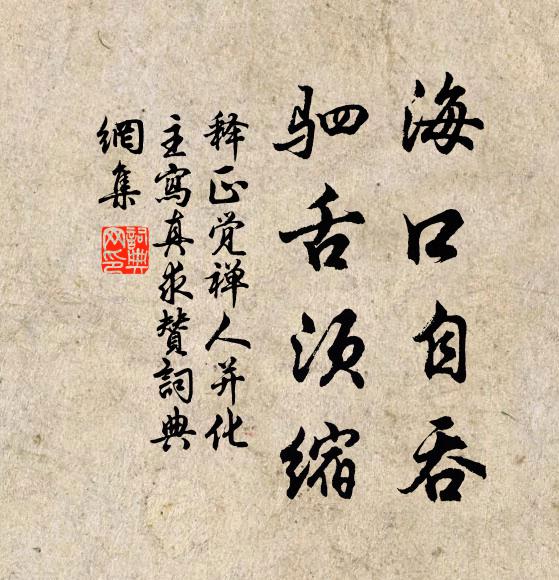 海口自吞
驷舌须缩
释正觉禅人并化
主寫真求赞詞典
網集
詞典
网印